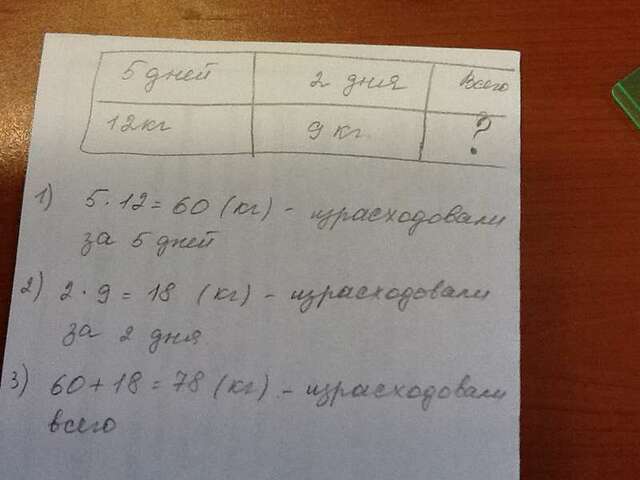 5 дней 2 дня Всего
12кг 9 кг ?
1) 5·12=60 (кг) - израсходовали
за 5 дней
2) 2·9=18 (кг) - израсходовали
за 2 дня
3) 60+18=78 (кг) - израсходовали
всего